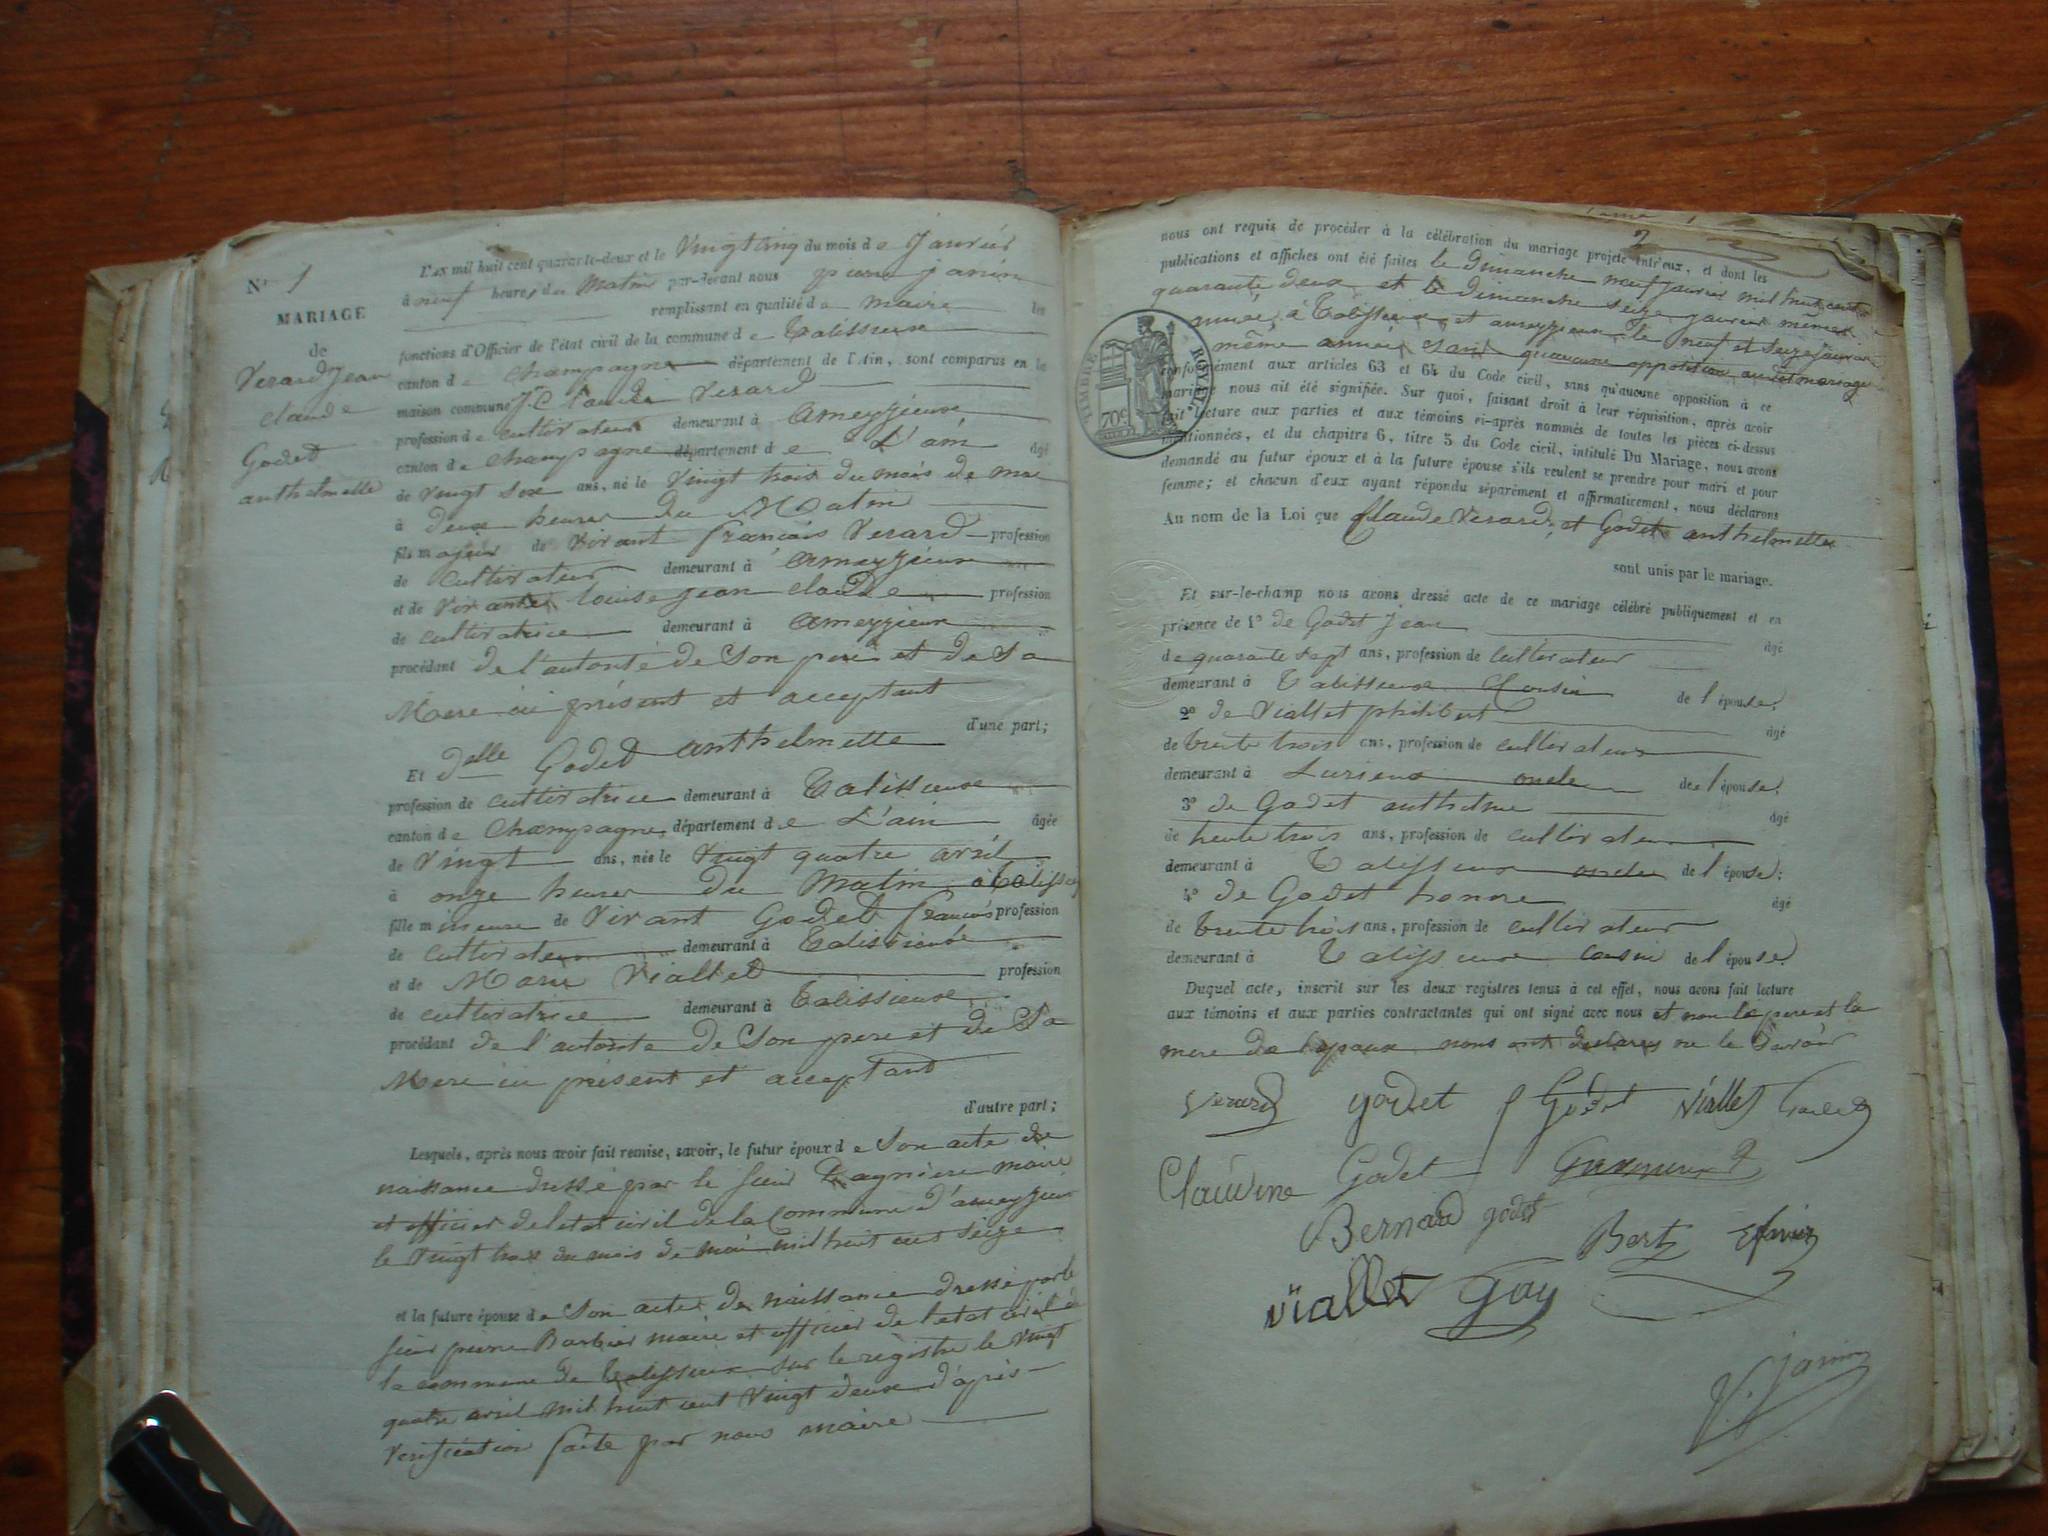 N° 1
MARIAGE
de
Verard Jean
claude
Godet
anthelmette
L'an mil huit cent quarante-deux et le Vingt cinq du mois de Janvier
à neuf heures du Matin par-devant nous pierre janin
remplissant en qualité de maire les
fonctions d'Officier de l'état civil de la commune de Talissieux
canton de Champagne département de l'Ain, sont comparus en la
maison commune J. Claude Verard
profession de cultivateur demeurant à ameyzieux
canton de Champagne département de L'ain âgé
de Vingt Six ans, né le Vingt trois du mois de mai
à deux heures du Matin
fils majeur de Vivant francois Verard profession
de cultivateur demeurant à ameyzieux
et de Vivante louise jean claude profession
de cultivatrice demeurant à ameyzieux
procédant de l'autorité de Son pere et de Sa
Mere ici présent et acceptant
d'une part;
Et delle Godet anthelmette
profession de cultivatrice demeurant à Talissieux
canton de Champagne département de L'ain âgée
de Vingt ans, née le Vingt quatre avril
à onze heures du Matin à talissieu
fille mineure de Vivant Godet francois profession
de cultivateur demeurant à Talissieux
et de Marie Viallet profession
de cultivatrice demeurant à Talissieux
procédant de l'autorité de Son pere et de Sa
Mere ici présent et acceptant
d'autre part;
Lesquels, après nous avoir fait remise, savoir, le futur époux de Son acte de
naissance dressé par le sieur maire
et officier de l'etat civil de la Commune d'ameyzieu
le Vingt trois du mois de mai mil huit cent Seize
et la future épouse de Son acte de naissance dressé par le
sieur pierre Barbier maire et officier de l'etat civil de
la commune de talissieux sur le registre le Vingt
quatre avril mil huit cent Vingt deux d'après
Verification faite par nous maire
2
nous ont requis de procéder à la célébration du mariage projeté entr'eux, et dont les
publications et affiches ont été faites le dimanche neuf janvier mil huit cent
quarante deux et le Dimanche seize janvier même
année, à Talissieux et ameyzieux le neuf et seize janvier
même année, sans quaucune opposition audit mariage
conformément aux articles 63 et 64 du Code civil, sans qu'aucune opposition à ce
mariage nous ait été signifiée. Sur quoi, faisant droit à leur réquisition, après avoir
fait lecture aux parties et aux témoins ci-après nommés de toutes les pièces ci-dessus
mentionnées, et du chapitre 6, titre 5 du Code civil, intitulé Du Mariage, nous avons
demandé au futur époux et à la future épouse s'ils veulent se prendre pour mari et pour
femme; et chacun d'eux ayant répondu séparément et affirmativement, nous déclarons
Au nom de la Loi que Claude Verard, et Godet anthelmette
sont unis par le mariage.
TIMBRE ROYAL
70c
Et sur-le-champ nous avons dressé acte de ce mariage célébré publiquement et en
présence de 1° de Godet Jean âgé
de quarante sept ans, profession de cultivateur
demeurant à Talissieux Cousin de l'épouse;
2° de Viallet philibert âgé
de trente trois ans, profession de cultivateur
demeurant à Lurieux oncle de l'épouse;
3° de Godet anthelme âgé
de trente trois ans, profession de cultivateur
demeurant à Talissieux oncle de l'épouse;
4° de Godet âgé
de trente trois ans, profession de cultivateur
demeurant à Talissieux cousin de l'épouse
Duquel acte, inscrit sur les deux registres tenus à cet effet, nous avons fait lecture
aux témoins et aux parties contractantes qui ont signé avec nous et non le pere et la
mere de l'epoux nous ont declarés ne le Savoir
Verard godet f Godet Viallet
Claudine Godet
Bernard godet Bert Janin
Viallet Goy
P. Janin